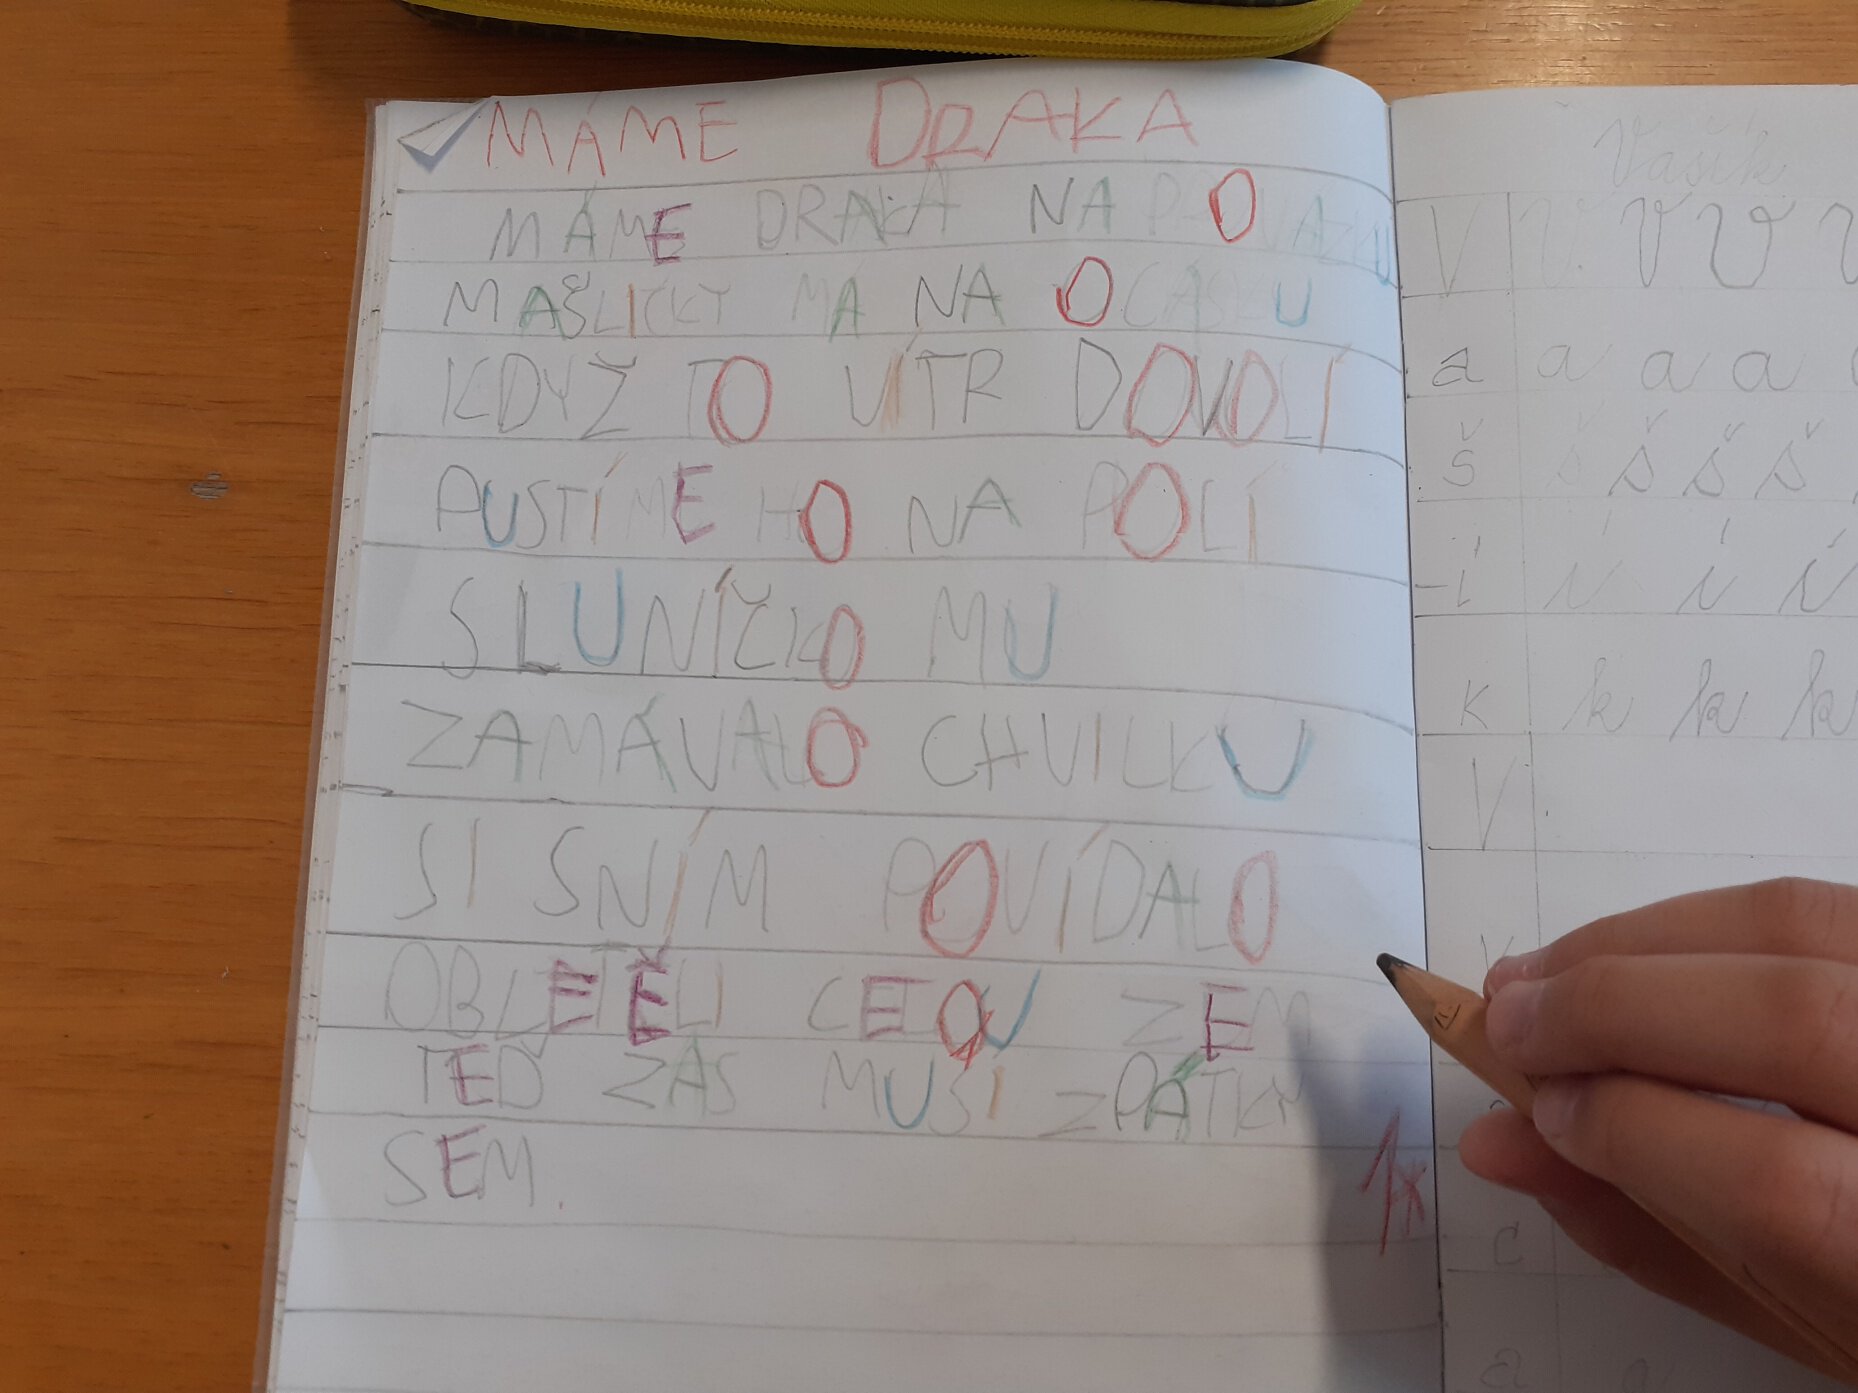 MÁME DRAKA
MÁME DRAKA NA PROVÁZKU
MAŠLIČKY MÁ NA OCÁSKU
KDYŽ TO VÍTR DOVOLÍ
PUSTÍME HO NA POLÍ
SLUNÍČKO MU
ZAMÁVALO CHVILKU
SI SNÍM POVÍDALO
OBLETĚLI CELOU ZEM
TEĎ ZAS MUSÍ ZPÁTKY
SEM.
1*
Vašík
V V V V
a a a a
š š š š š
i i i i
k k k k
V
c
a a